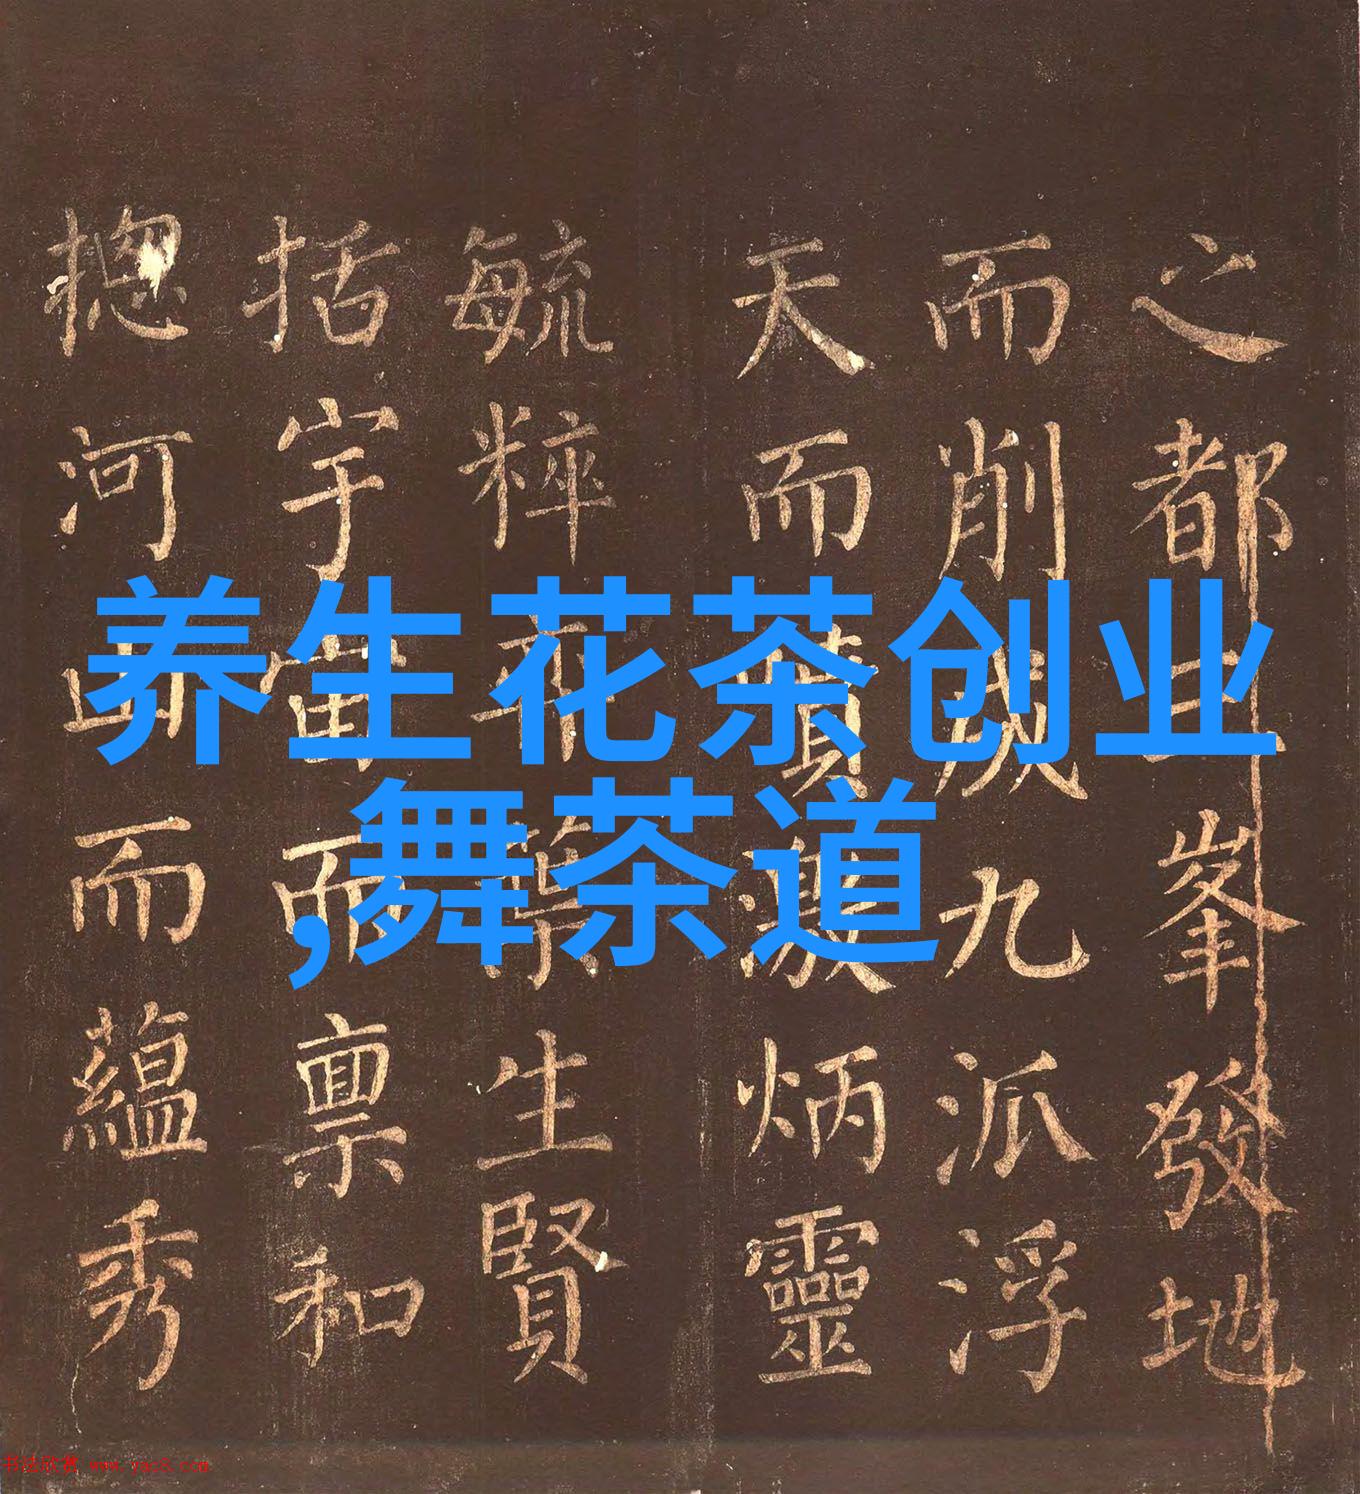 养生花茶创业
,舞茶道
之都巨峯發地
而削成九派浮
天而噴激炳靈
毓粹生賢
括宇宙而稟和
摠河山而蘊秀
书法欣赏 www.yac8.com